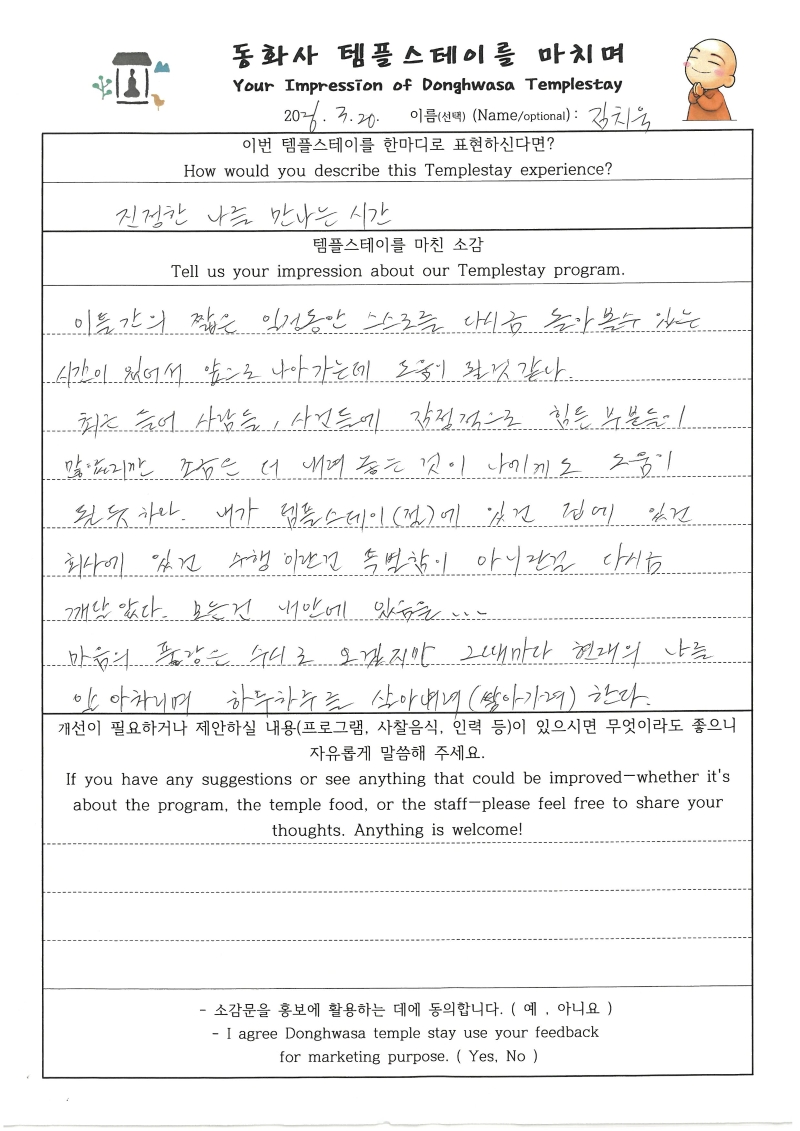 동화사 템플스테이를 마치며
Your Impression of Donghwasa Templestay
2026. 3. 20. 이름(선택) (Name/optional) : 김치욱
이번 템플스테이를 한마디로 표현하신다면?
How would you describe this Templestay experience?
진정한 나를 만나는 시간
템플스테이를 마친 소감
Tell us your impression about our Templestay program.
이틀간의 짧은 일정동안 스스로를 다시금 돌아볼수 있는
시간이 있어서 앞으로 나아가는데 도움이 될것 같다.
최근 들어 사람들, 사건들에 감정적으로 힘든 부분들이
많았지만 조금은 더 내려 놓는 것이 나에게도 도움이
될듯 하다. 내가 템플스테이(절)에 있건 집에 있건
회사에 있건 수행이란건 특별함이 아니란걸 다시금
깨달았다. 모든건 내안에 있음을...
마음의 풍랑은 수시로 오겠지만 그때마다 현재의 나를
알아차리며 하루하루를 살아내려(쌓아가려) 한다.
개선이 필요하거나 제안하실 내용(프로그램, 사찰음식, 인력 등)이 있으시면 무엇이라도 좋으니
자유롭게 말씀해 주세요.
If you have any suggestions or see anything that could be improved—whether it's
about the program, the temple food, or the staff—please feel free to share your
thoughts. Anything is welcome!
- 소감문을 홍보에 활용하는 데에 동의합니다. ( 예 , 아니요 )
- I agree Donghwasa temple stay use your feedback
for marketing purpose. ( Yes, No )